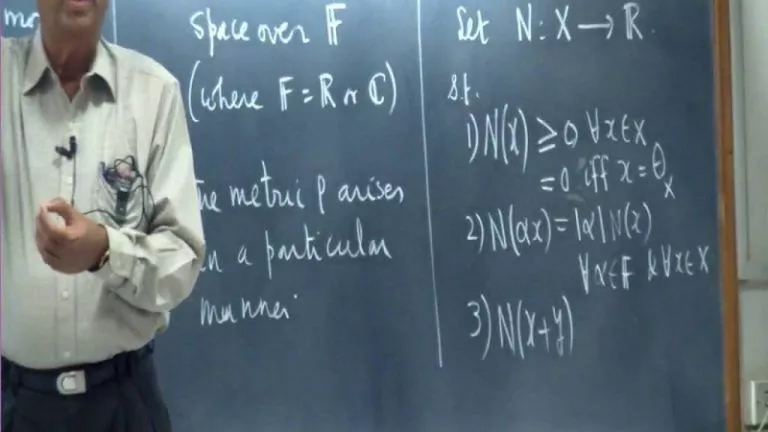 space over F
(where F = R or C)
metric ρ arises
a particular
manner
Let N : X → R.
s.t.
1) N(x) ≥ 0 ∀x∈X
= 0 iff x = θ_X
2) N(αx) = |α| N(x)
∀α∈F & ∀x∈X
3) N(x+y)